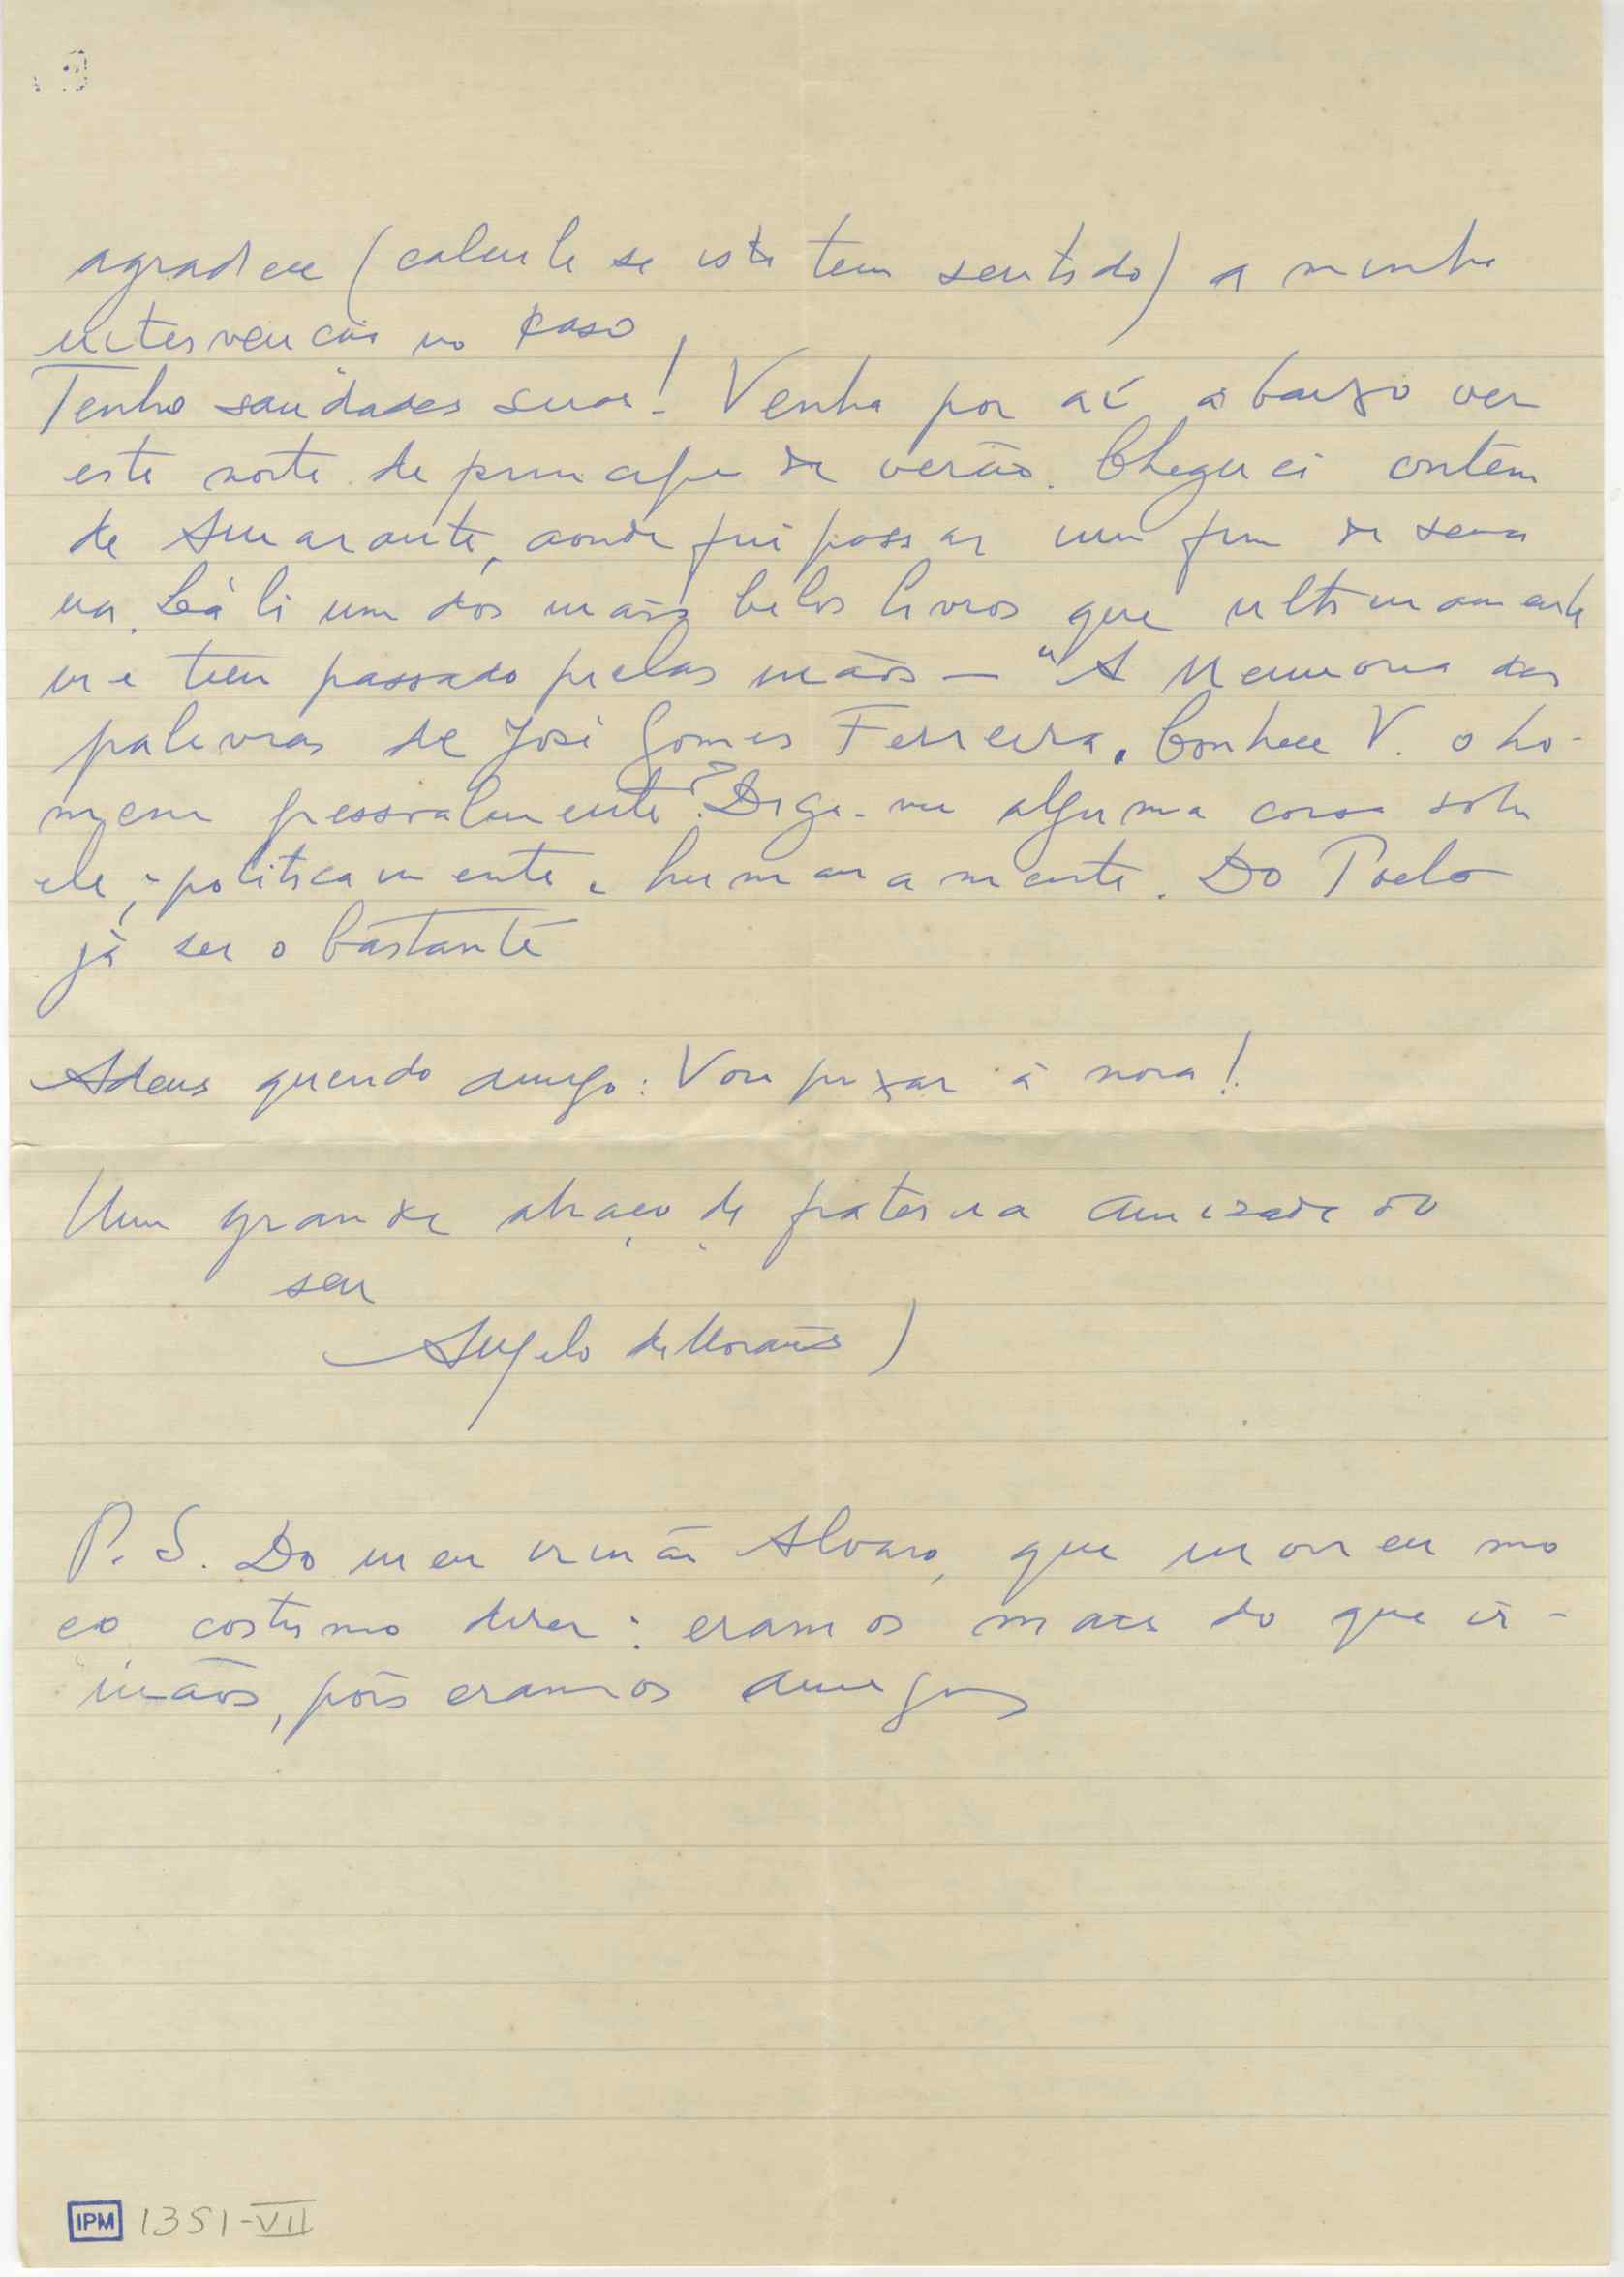 agradece (calcule se isto tem sentido) a minha
intervenção no caso
Tenho saudades suas! Venha por aí abaixo ver
este norte de principio de verão. Cheguei ontem
de Amarante, aonde fui passar um fim de sema
na. Lá li um dos mais belos livros que ultimamente
me tem passado pelas mãos — "A Memoria das
palavras de José Gomes Ferreira. Conhece V. o ho-
mem pessoalmente? Diga-me alguma coisa sobre
ele, politicamente e humanamente. Do Poeta
já sei o bastante
Adeus querido amigo: Vou puxar à nora!
Um grande abraço de fraterna amizade do
seu
Angelo de Morais
P.S. Do meu irmão Alvaro, que morreu mo
ço costumo dizer: eramos mais do que ir-
mãos, pois eramos amigos
IPM 1351-VII